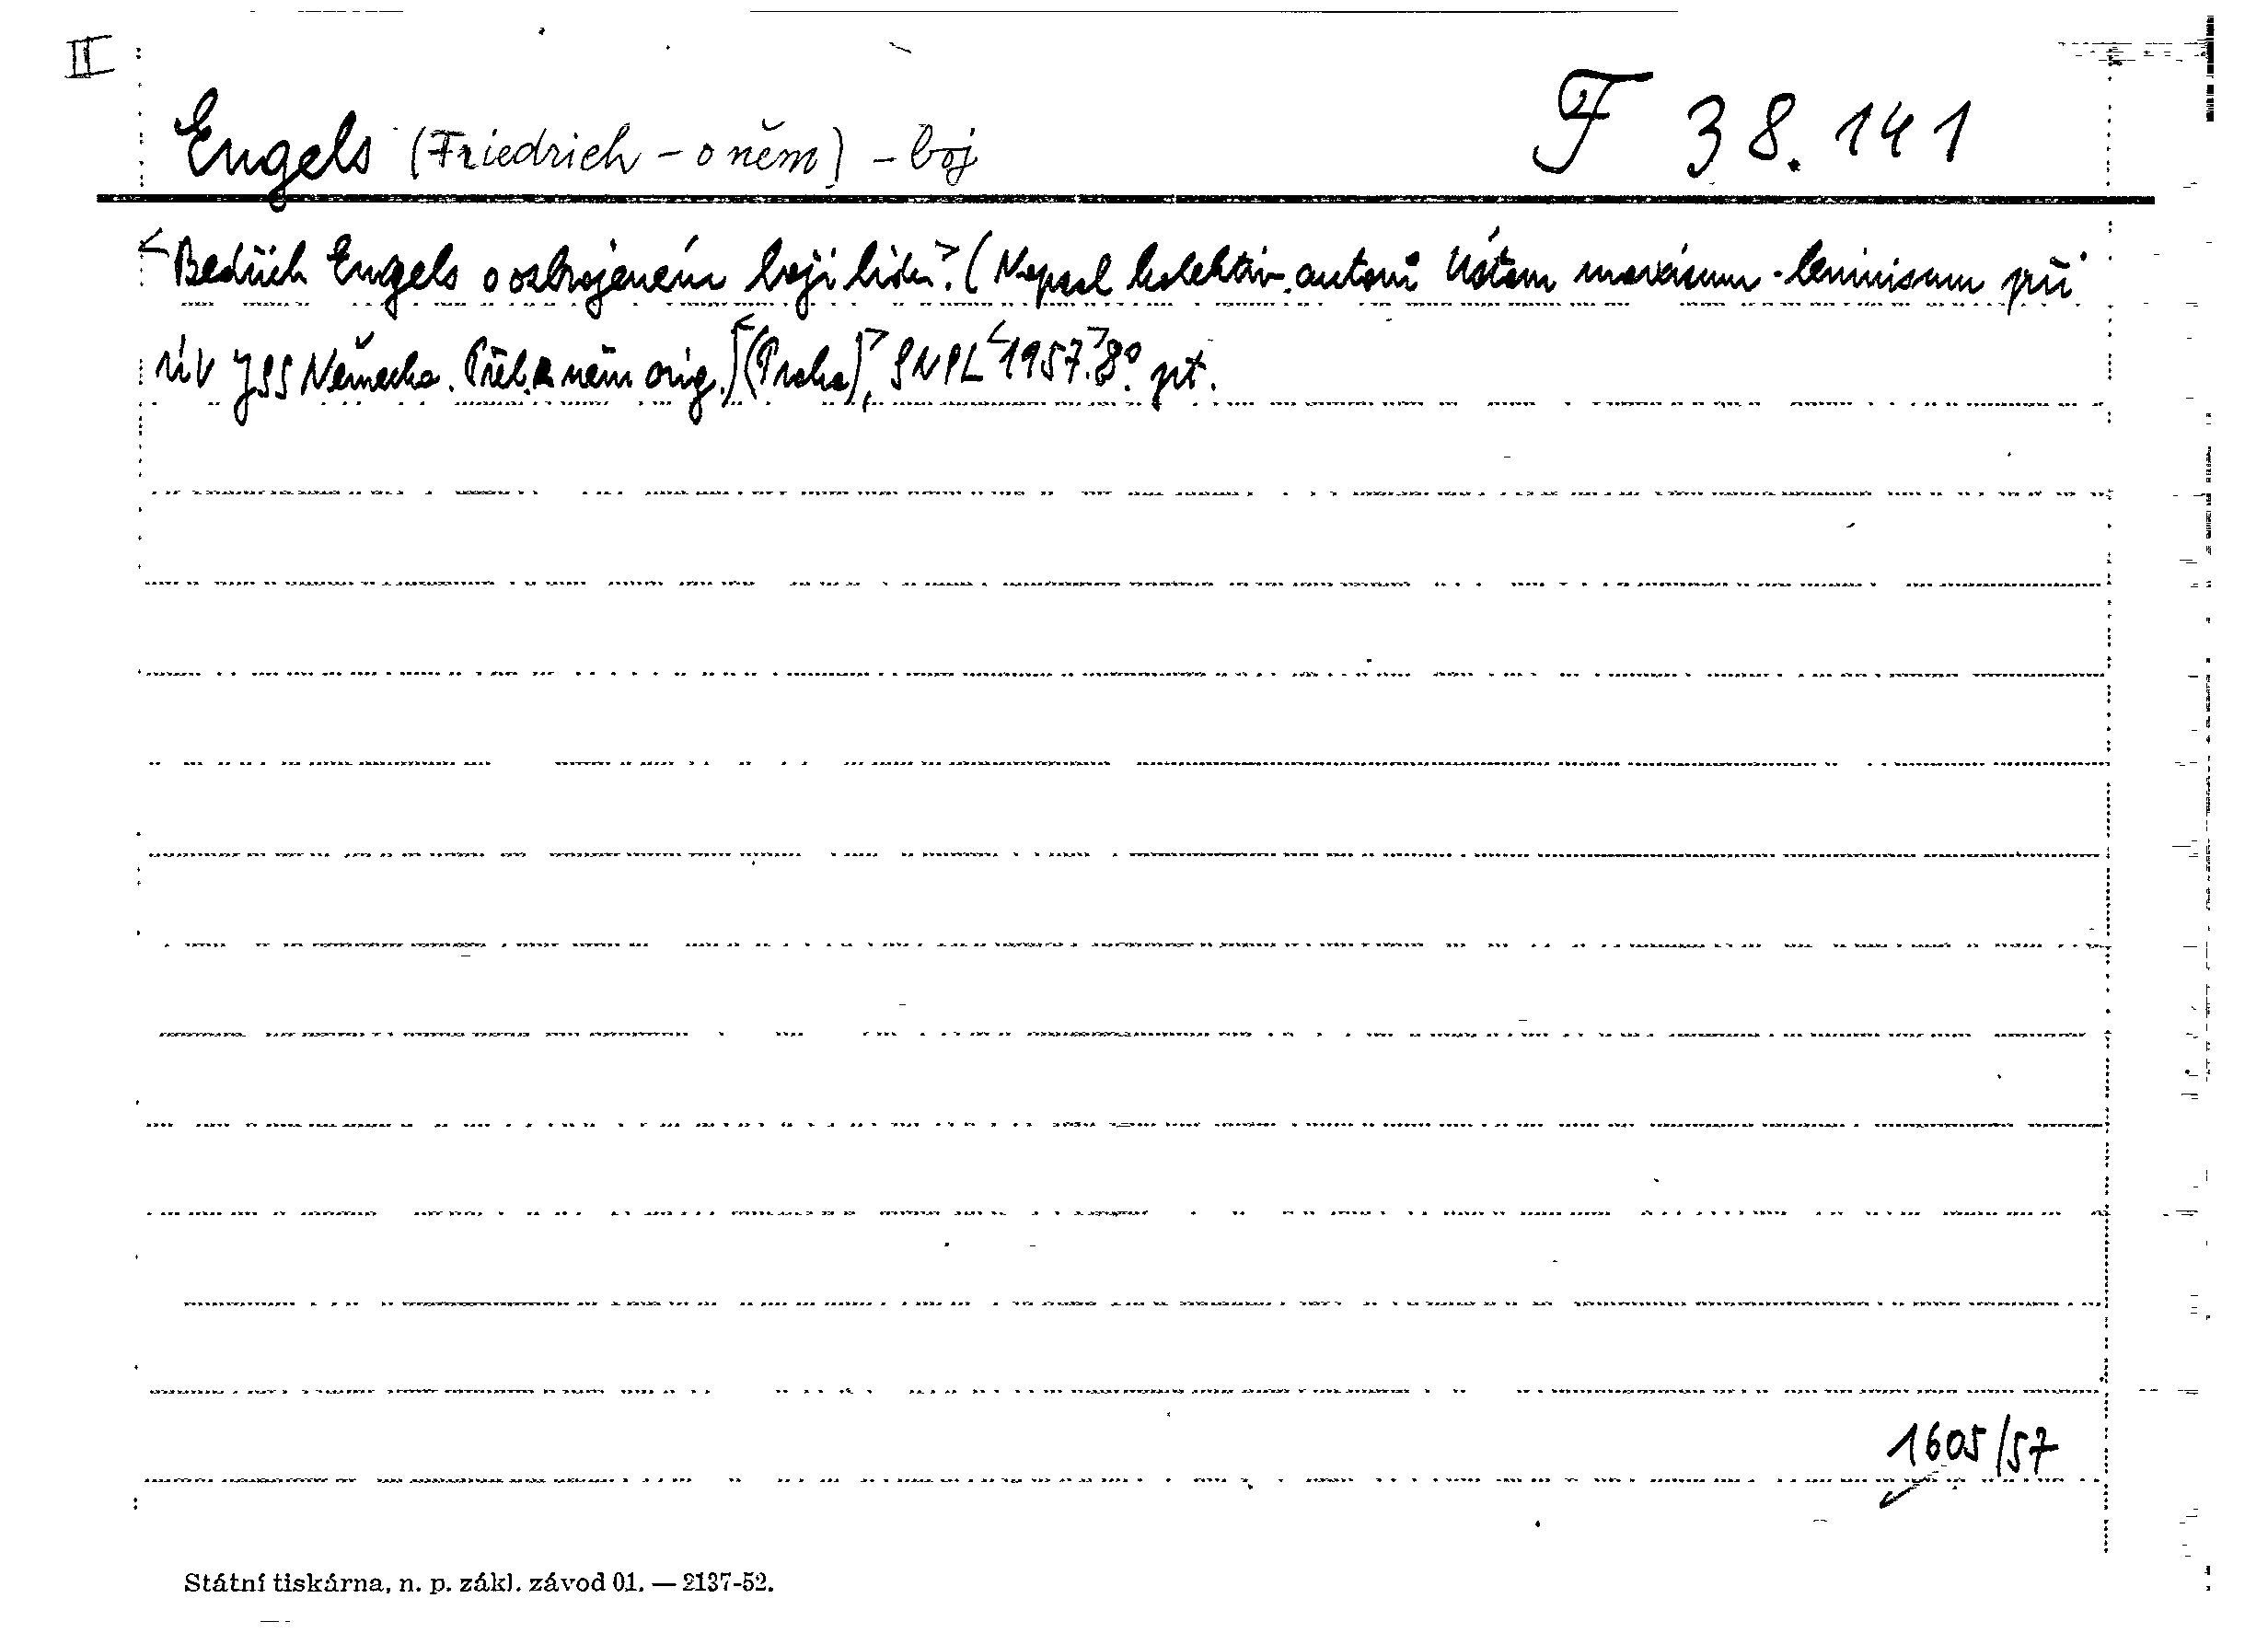 II
Engels (Friedrich - o něm) - boj F 38.141
<Bedřich Engels o ozbrojeném boji lidu.> (Napsal kolektiv autorů Ústavu marxismu-leninismu při
ÚV JSS Německa. Přel. z něm orig.) <(Praha)>, SNPL <1957.> 8°. pt.
1605/57
Státní tiskárna, n. p. zákl. závod 01. — 2137-52.